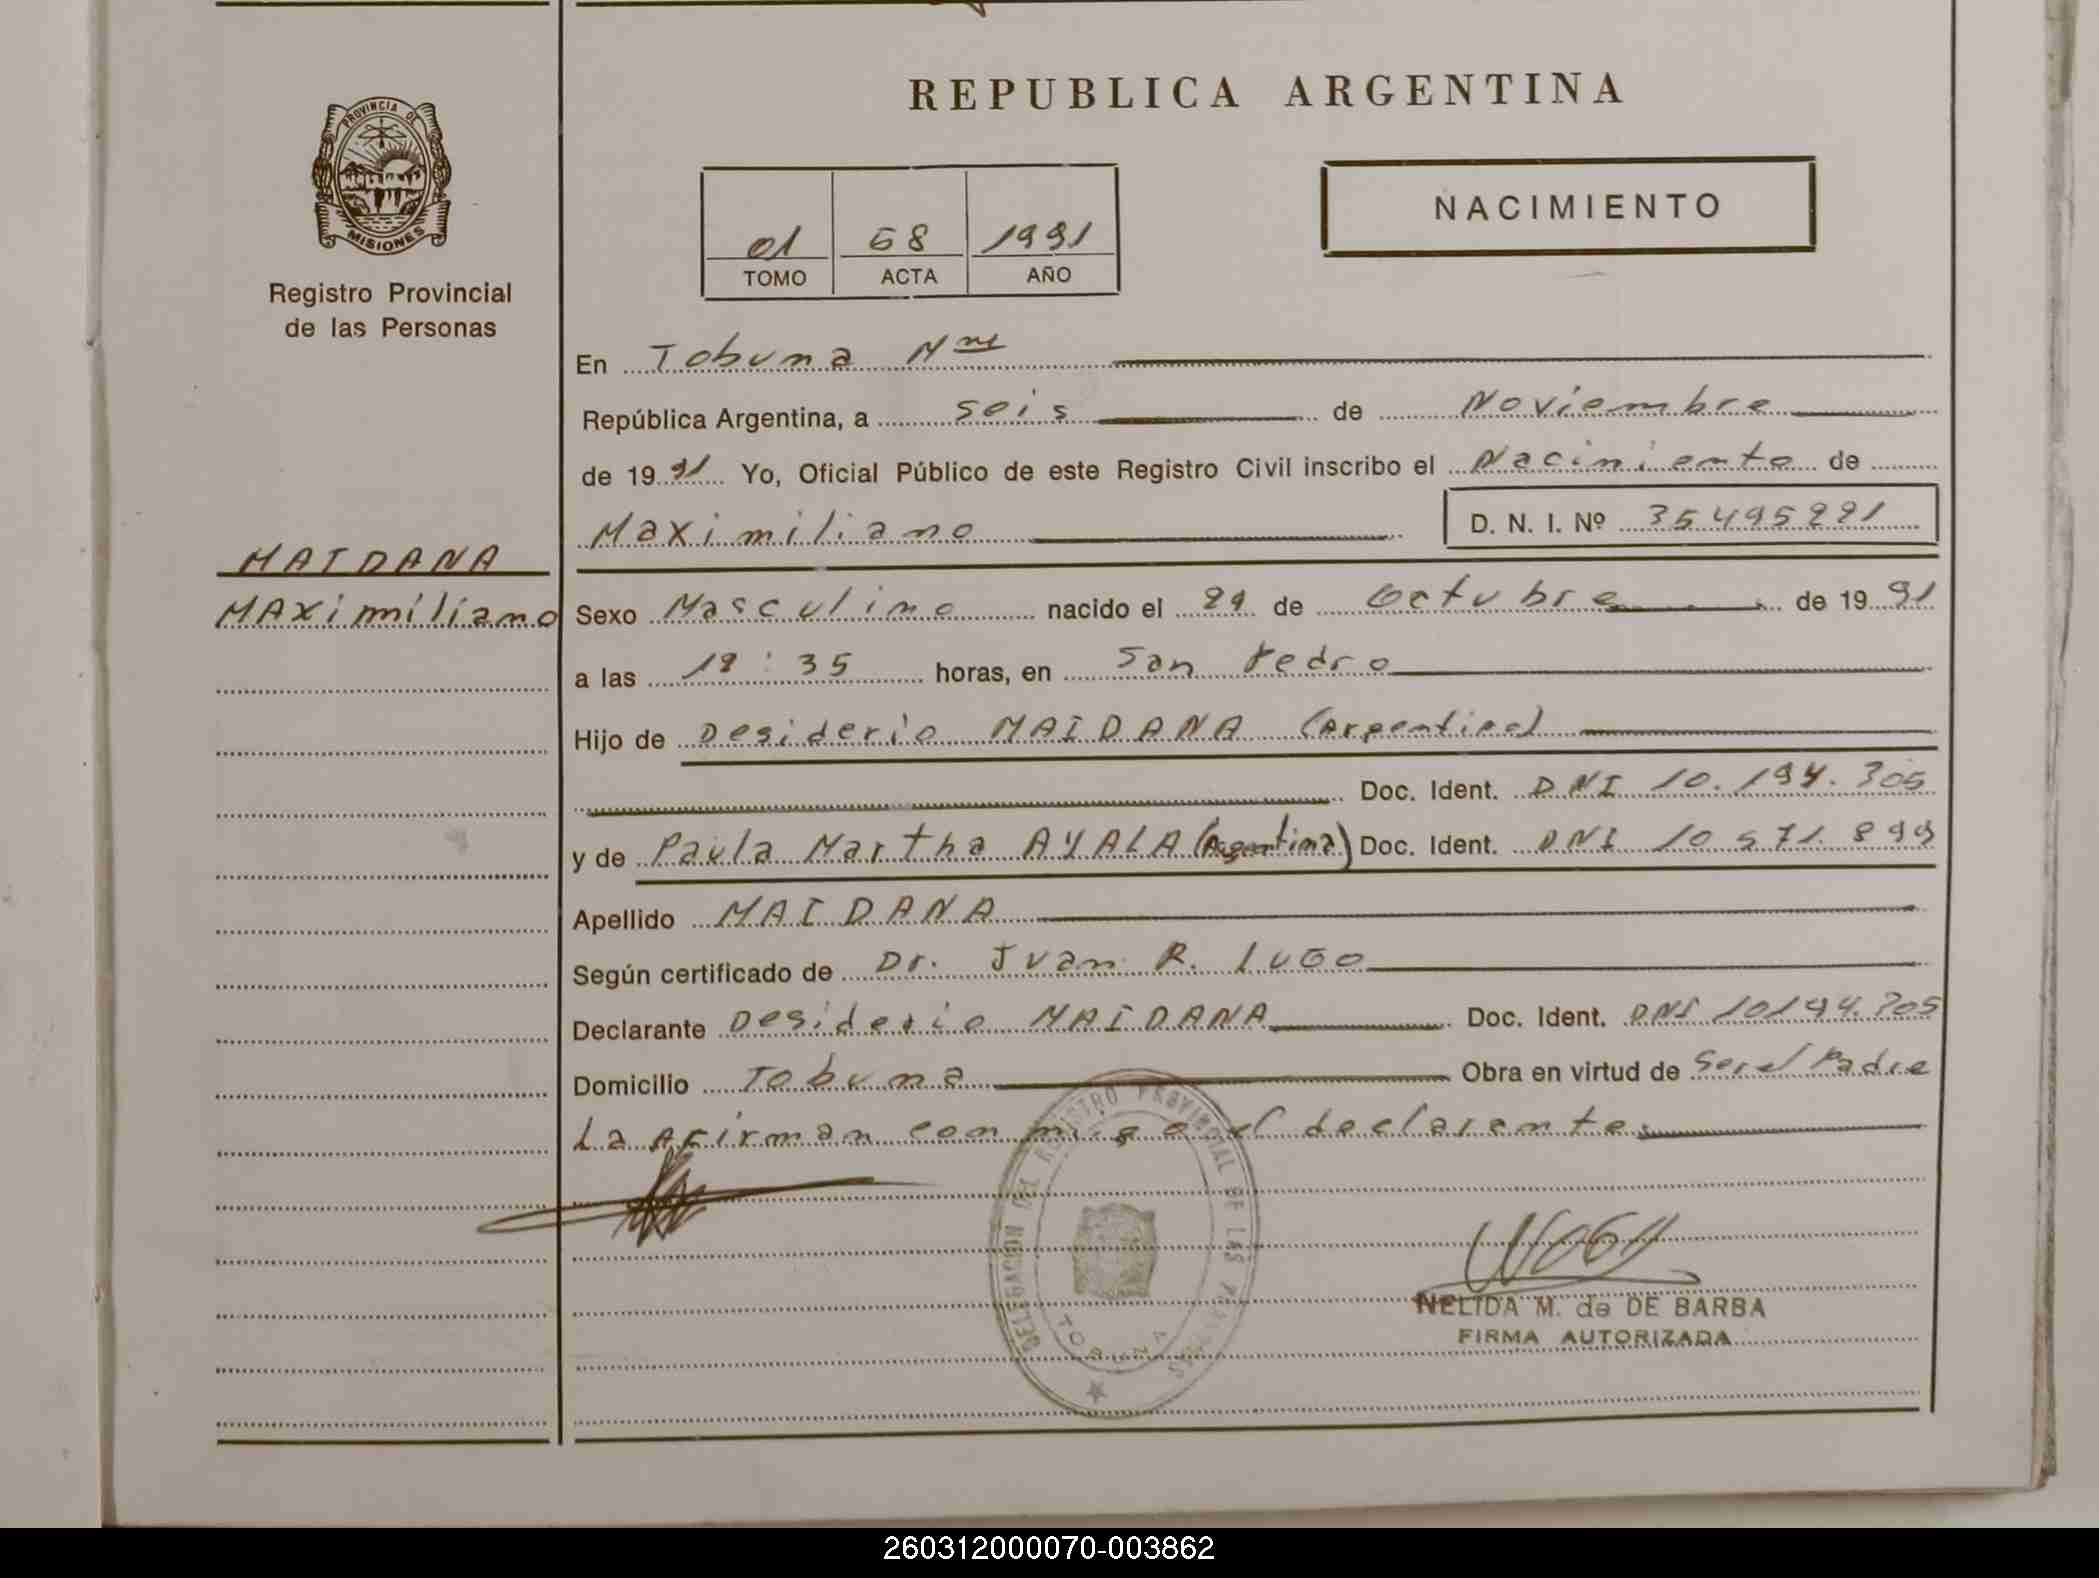 REPUBLICA ARGENTINA
PROVINCIA DE
MISIONES
Registro Provincial
de las Personas
NACIMIENTO
01 68 1991
TOMO ACTA AÑO
En Tobuna Mnes
República Argentina, a seis de Noviembre
de 1991 Yo, Oficial Público de este Registro Civil inscribo el Nacimiento de
Maximiliano D. N. I. Nº 35495221
MAIDANA
MAximiliano
Sexo Masculino nacido el 29 de Octubre de 1991
a las 19:35 horas, en San Pedro
Hijo de Desiderio MAIDANA (Argentino)
Doc. Ident. DNI 10.194.305
y de Paula Martha AYALA (Argentina) Doc. Ident. DNI 10 571. 899
Apellido MAIDANA
Según certificado de Dr. Juan R. LUGO
Declarante Desiderio MAIDANA Doc. Ident. DNI 10194.305
Domicilio Tobuna Obra en virtud de Ser el Padre
La firman conmigo el declarante
DELEGACION DEL REGISTRO PROVINCIAL DE LAS PERSONAS
TOBUNA
NELIDA M. de DE BARBA
FIRMA AUTORIZADA
260312000070-003862